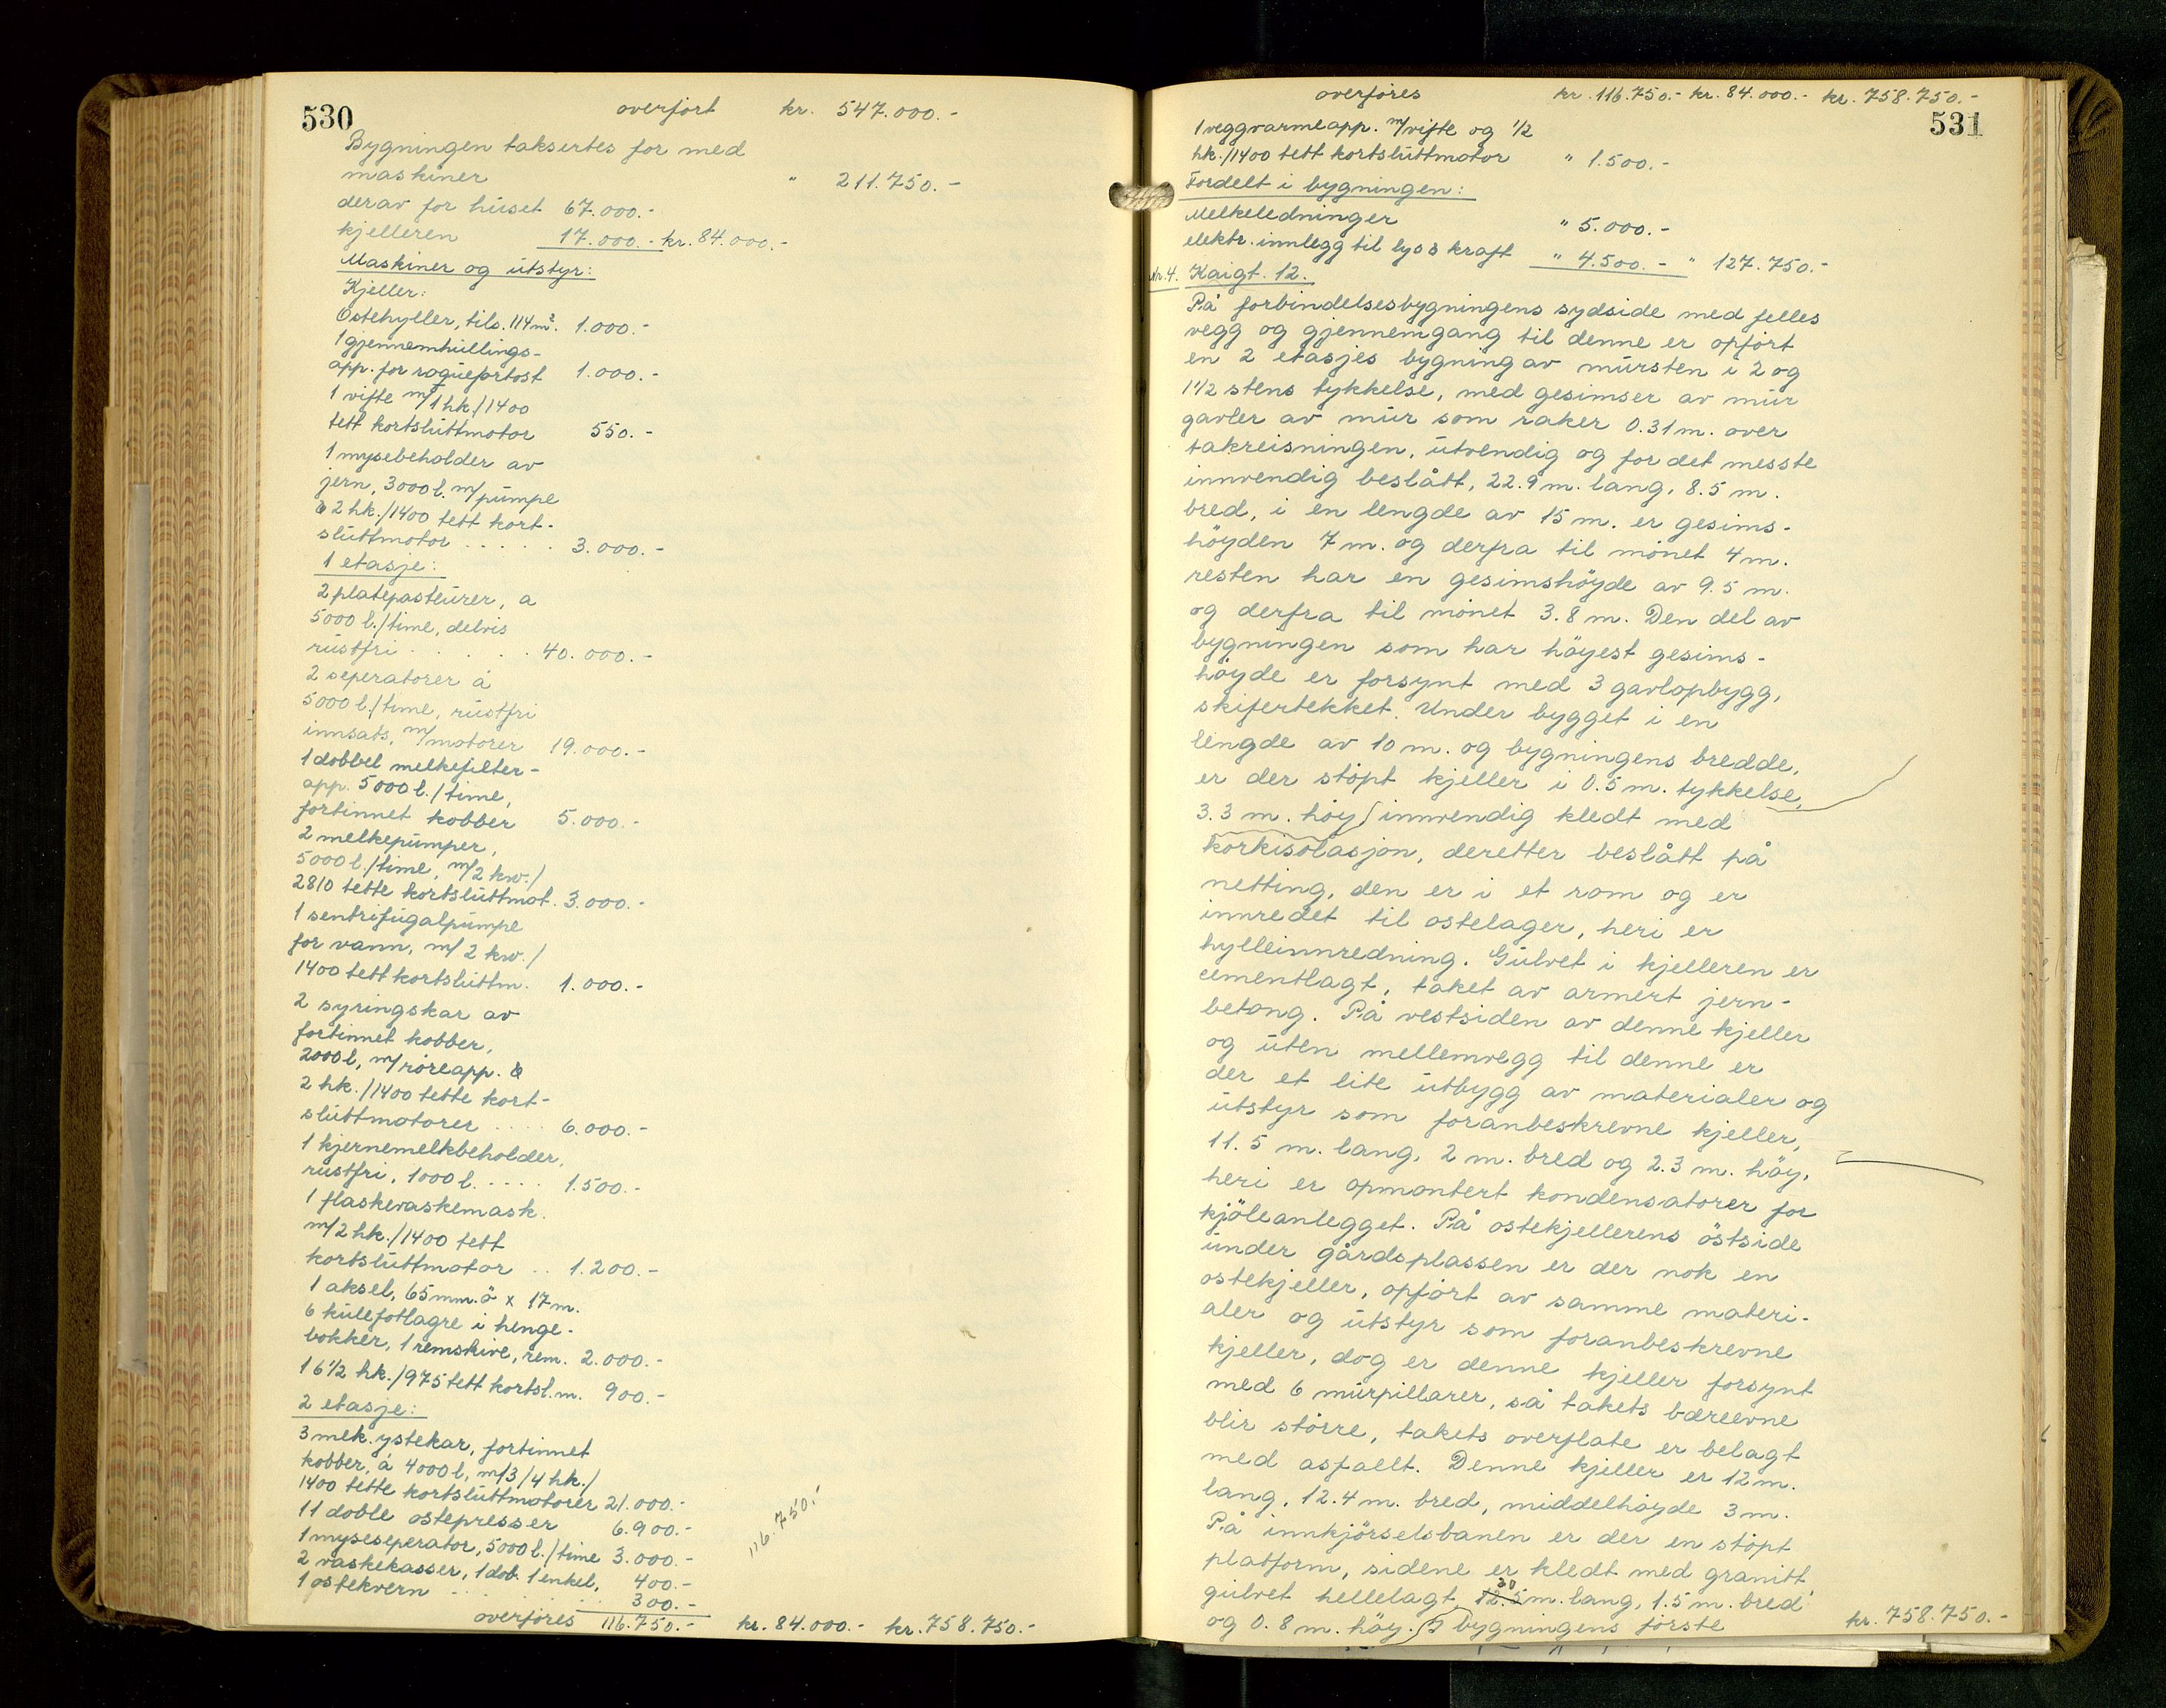 530
overført kr. 547.000.-
Bygningen taksertes for med
maskiner " 211.750.-
derav for huset 67.000.-
kjelleren 17.000.- kr. 84.000.-
Maskiner og utstyr:
Kjeller:
Ostehyller, tils. 114 m². 1.000.-
1 gjennemhullings-
app. for roquefortost 1.000.-
1 vifte m/1 hk./1400
tett kortsluttmotor 550.-
1 mysebeholder av
jern, 3000 l. m/pumpe
& 2 hk./1400 tett kort-
sluttmotor ..... 3.000.-
1 etasje:
2 platepasteurer, a
5000 l./time, delvis
rustfri ..... 40.000.-
2 seperatorer á
5000 l./time, rustfri
innsats, m/motorer 19.000.-
1 dobbel melkefilter-
app. 5000 l./time,
fortinnet kobber 5.000.-
2 melkepumper,
5000 l./time, m/2 kw./
2810 tette kortsluttmot. 3.000.-
1 sentrifugalpumpe
for vann, m/ 2 kw./
1400 tett kortsluttm. 1.000.-
2 syringskar av
fortinnet kobber,
2000 l, m/røreapp. &
2 hk./1400 tette kort-
sluttmotorer .... 6.000.-
1 kjernemelkbeholder,
rustfri, 1000 l. .... 1.500.-
1 flaskevaskemask.
m/2 hk./1400 tett
kortsluttmotor .. 1.200.-
1 aksel, 65 mm. ø x 17 m.
6 kulefotlagre i henge-
bokker, 1 remskive, rem. 2.000.-
1 6 1/2 hk./975 tett kortsl. m. 900.-
2 etasje:
3 mek. ystekar, fortinnet
kobber, á 4000 l, m/3/4 hk./
1400 tette kortsluttmotorer 21.000.-
11 doble ostepresser 6.900.-
1 myseseperator, 5000 l./time 3.000.-
2 vaskekasser, 1 dob. 1 enkel, 400.-
1 ostekvern ..... 300.-
116.750.-
overføres 116.750.- kr. 84.000.- kr. 758.750.-
overføres kr. 116.750.- kr. 84.000.- kr. 758.750.-
531
1 veggvarmeapp. m/vifte og 1/2
hk./1400 tett kortsluttmotor " 1.500.-
Fordelt i bygningen:
Melkeledninger " 5.000.-
elektr. innlegg til lys & kraft " 4.500.- " 127.750.-
Nr. 4. Kaigt. 12.
På forbindelsesbygningens sydside med felles
vegg og gjennemgang til denne er opført
en 2 etasjes bygning av mursten i 2 og
1 1/2 stens tykkelse, med gesimser av mur
gavler av mur som raker 0.31 m. over
takreisningen, utvendig og for det messte
innvendig beslått, 22.9 m. lang, 8.5 m.
bred, i en lengde av 15 m. er gesims-
høyden 7 m. og derfra til mønet 4 m.
resten har en gesimshöyde av 9.5 m.
og derfra til mønet 3.8 m. Den del av
bygningen som har höyest gesims-
höyde er forsynt med 3 gavlopbygg,
skifertekket. Under bygget i en
lengde av 10 m. og bygningens bredde,
er der støpt kjeller i 0.5 m. tykkelse,
3.3 m. höy, innvendig kledt med
korkisolasjon, deretter beslått på
netting, den er i et rom og er
innredet til ostelager, heri er
hylleinnredning. Gulvet i kjelleren er
cementlagt, taket av armert jern-
betong. På vestsiden av denne kjeller
og uten mellemvegg til denne er
der et lite utbygg av materialer og
utstyr som foranbeskrevne kjeller,
11.5 m. lang, 2 m. bred og 2.3 m. höy,
heri er opmontert kondensatorer for
kjöleanlegget. På ostekjellerens östside
under gårdsplassen er der nok en
ostekjeller, opført av samme materi-
aler og utstyr som foranbeskrevne
kjeller, dog er denne kjeller forsynt
med 6 murpillarer, så takets bæreevne
blir större, takets overflate er belagt
med asfallt. Denne kjeller er 12 m.
lang, 12.4 m. bred, middelhöyde 3 m.
På innkjörselsbanen er der en støpt
platform, sidene er kledt med granitt,
gulvet hellelagt, 12.5 30 m. lang, 1.5 m. bred
og 0.8 m. höy. I bygningens første kr. 758.750.-